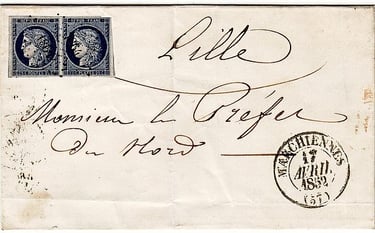 REPUB. FRANC. REPUB. FRANC.
Lille
Monsieur le Préfet
Du Nord
MARCHIENNES
17
AVRIL
1852
(57)